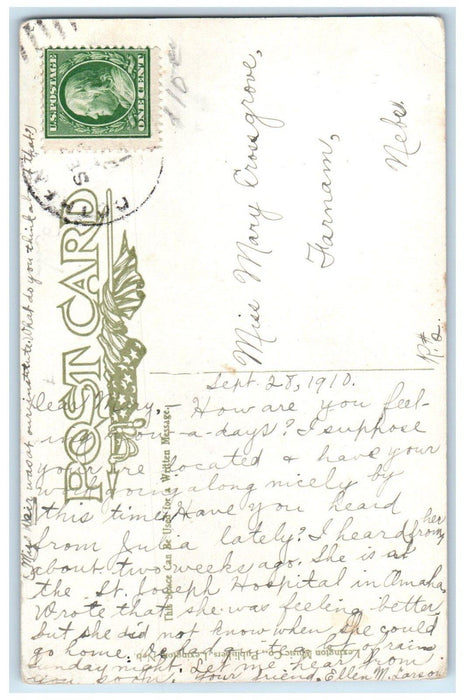 U.S. POSTAGE
ONE CENT
SE
10¢
POST CARD
This Space Can Be Used for a Written Message.
Lexington Music Co., Publishers, Lexington, Neb.
Miss Mary Crossgrove,
Farnam,
Nebr
R#2.
Sept. 28, 1910.
Dear Mary,- How are you feel-
ing now-a-days? I suppose
your are located & have your
work going along nicely by
this time. Have you heard
from Julia lately? I heard from her
about two weeks ago. She is at
the St. Joseph Hospital in Omaha,
Wrote that she was feeling better
but she did not know when she could
go home. rain
Sunday night. Let me hear from
you soon. Your friend, Ellen M. Larson
(Miss was at our institute. What do you think about that?)